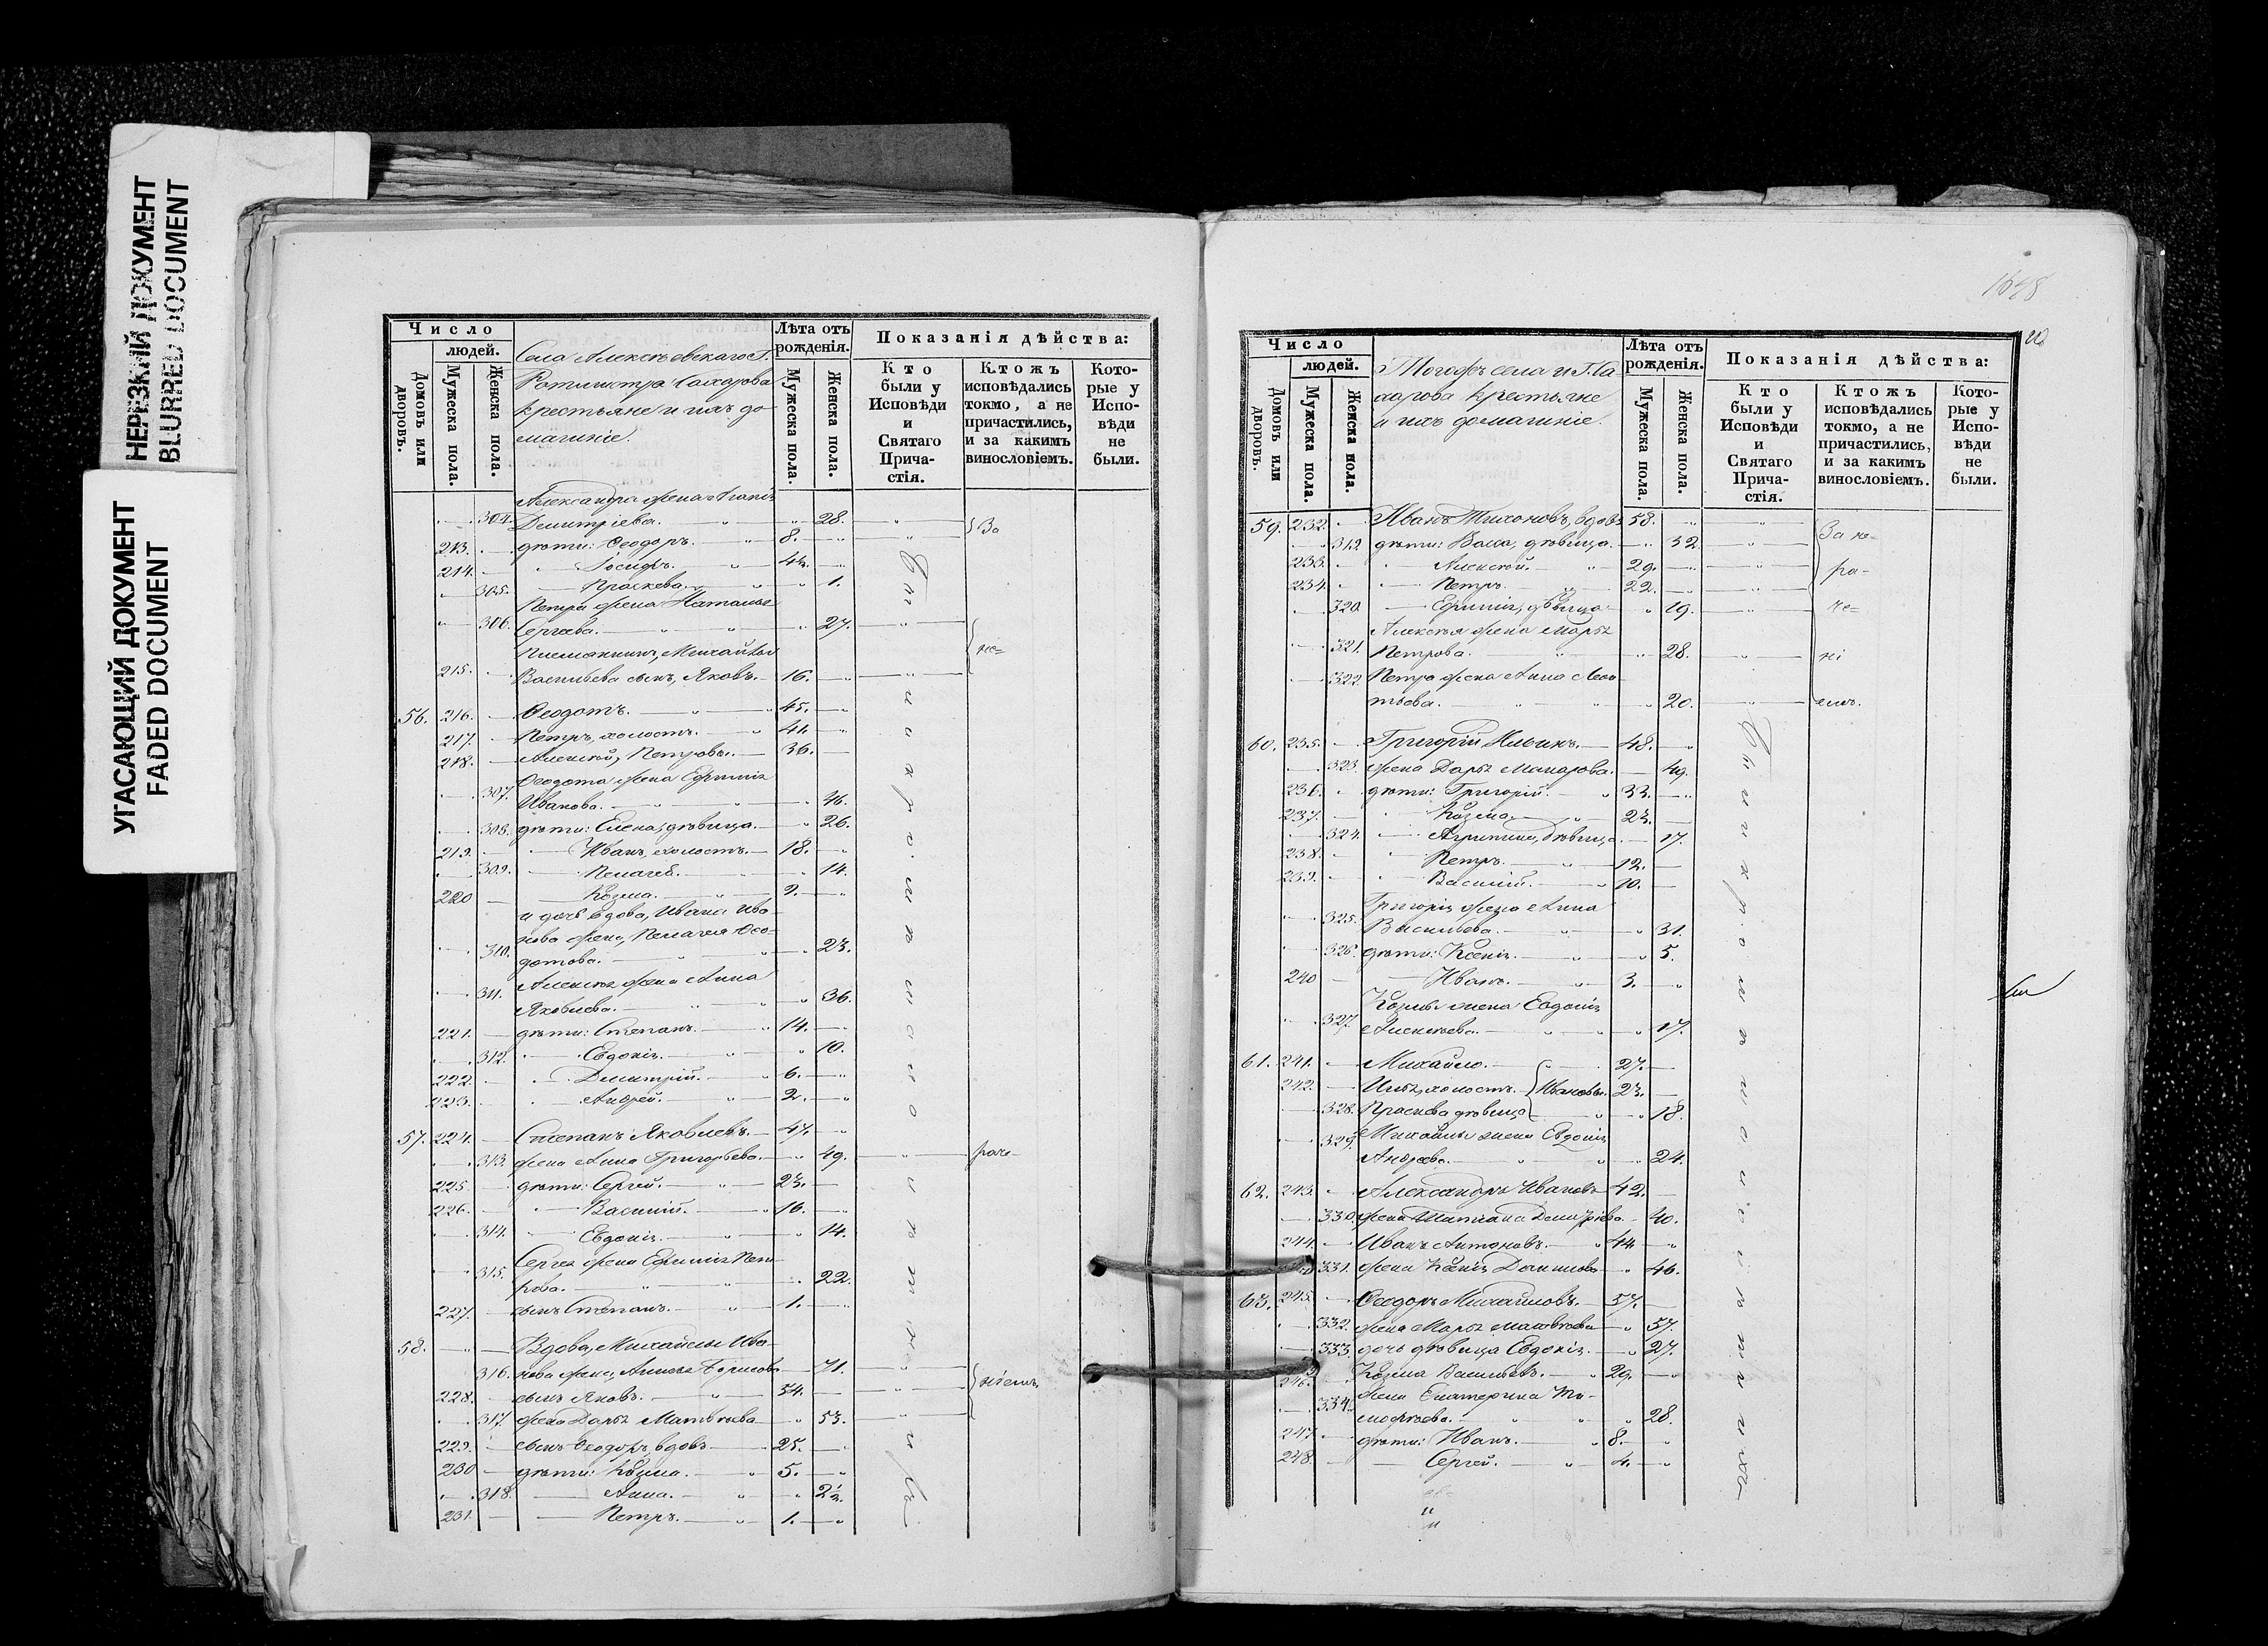 НЕРІЗКИЙ ДОКУМЕНТ
BLURRED DOCUMENT
УГАСАЮЩИЙ ДОКУМЕНТ
FADED DOCUMENT
Число
людей.
Домовъ или дворовъ.
Мужеска пола.
Женска пола.
Села Алексѣевскаго Г.
Ротмистра Сахарова
крестьяне и ихъ до-
машніе.
Лѣта отъ рожденія.
Мужеска пола.
Женска пола.
Показанія дѣйства:
Кто были у Исповѣди и Святаго Причастія.
Ктожъ исповѣдались токмо, а не причастились, и за какимъ винословіемъ.
Которые у Исповѣди не были.
Александра жена
304. Димитріева. 28. За
213. дѣти: Ѳеодоръ. 8.
214. Іосифъ.
305. Праскева. 1.
Петра жена Наталья
306. Сергѣева. 27.
Племянникъ, Михайлы не=
215. Васильева сынъ, Яковъ. 16.
56. 216. Ѳеодотъ. 45.
217. Петръ, холостъ. 41.
218. Алексѣй, Петровы. 36.
Ѳеодота жена Ефимія
307. Иванова. 46.
308. дѣти: Елена, дѣвица. 26.
219. Иванъ, холостъ. 18.
309. Пелагея. 14.
220 Козма. 9.
и дочь вдова, Ивана Ива-
нова жена, Пелагея Ѳео-
310. дотова. 23.
Алексѣя жена Анна
311. Яковлева. 36.
221. дѣти: Степанъ. 14.
312. Евдокія. 10.
222. Димитрій. 6.
223. Андрей. 2.
57. 224. Степанъ Яковлевъ. 47.
313. жена Анна Григорьева. 49. раче-
225. дѣти: Сергей. 23.
226. Василій. 16.
314. Евдокія. 14.
Сергея жена Ефимія Пет-
315. рова. 22.
227. сынъ Степанъ. 1.
58. Вдова, Михайлы Ива-
316. нова жена, Борисова 71.
228. сынъ Яковъ. 54. ніемъ.
317. жена Дарья Матвѣева 53.
229. сынъ Ѳеодоръ, вдовъ 25.
230 дѣти: Козма. 5.
318. Анна. 2½.
231. Петръ. 1.
1648
20
Число
людей.
Домовъ или дворовъ.
Мужеска пола.
Женска пола.
Тогожъ села и Г. Са-
харова крестьяне
и ихъ домашніе.
Лѣта отъ рожденія.
Мужеска пола.
Женска пола.
Показанія дѣйства:
Кто были у Исповѣди и Святаго Причастія.
Ктожъ исповѣдались токмо, а не причастились, и за какимъ винословіемъ.
Которые у Исповѣди не были.
59. 232. Иванъ Тихоновъ, вдовъ 58. За не-
319. дѣти: Васса, дѣвица. 32.
233. Алексѣй. 29. ра-
234. Петръ. 22.
320. Ефимія, дѣвица 19. че-
Алексѣя жена Марья
321. Петрова. 28. ні
322. Петра жена Анна Леон-
тьева. 20. емъ.
60. 235. Григорій Ильинъ. 48.
323. жена Дарья Макарова. 49.
236. дѣти: Григорій. 33.
237. Козма. 23.
324. Агрипина, дѣвица. 17.
238. Петръ. 12.
239. Василій. 10.
Григорія жена Анна
325. Васильева. 31.
326. дѣти: Ксенія. 5.
240 Иванъ. 3.
Козмы жена Евдокія
327. Алексѣева. 17.
61. 241. Михайло. 27.
242. Илья, холостъ. Ивановы. 23.
328. Праскева дѣвица 18.
Михайлы жена Евдокія
329. Андреева. 24.
62. 243. Александръ Ивановъ 42.
330. жена Татіана Димитріева. 40.
244. Иванъ Антоновъ. 44
331. жена Ксенія Данилова 46.
63. 245. Ѳеодоръ Михайловъ. 57.
332. жена Марья Матвѣева 57.
333. дочь дѣвица Евдокія. 27.
246. Козма Васильевъ. 29.
334. жена Екатерина Ти-
моѳеева. 28.
247. дѣти: Иванъ. 8.
248. Сергей. 4.